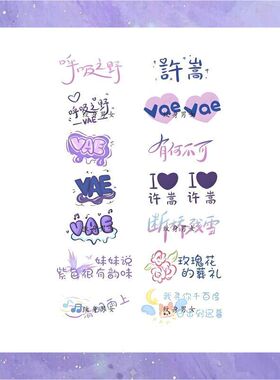 呼吸之野
許嵩
呼吸之野
VAE
vae vae
VAE
有何不可
VAE
I I
许嵩 许嵩
VAE
断桥残雪
妹妹说
紫色很有韵味
玫瑰花
的葬礼
上
我寻你千百度
日出到迟暮